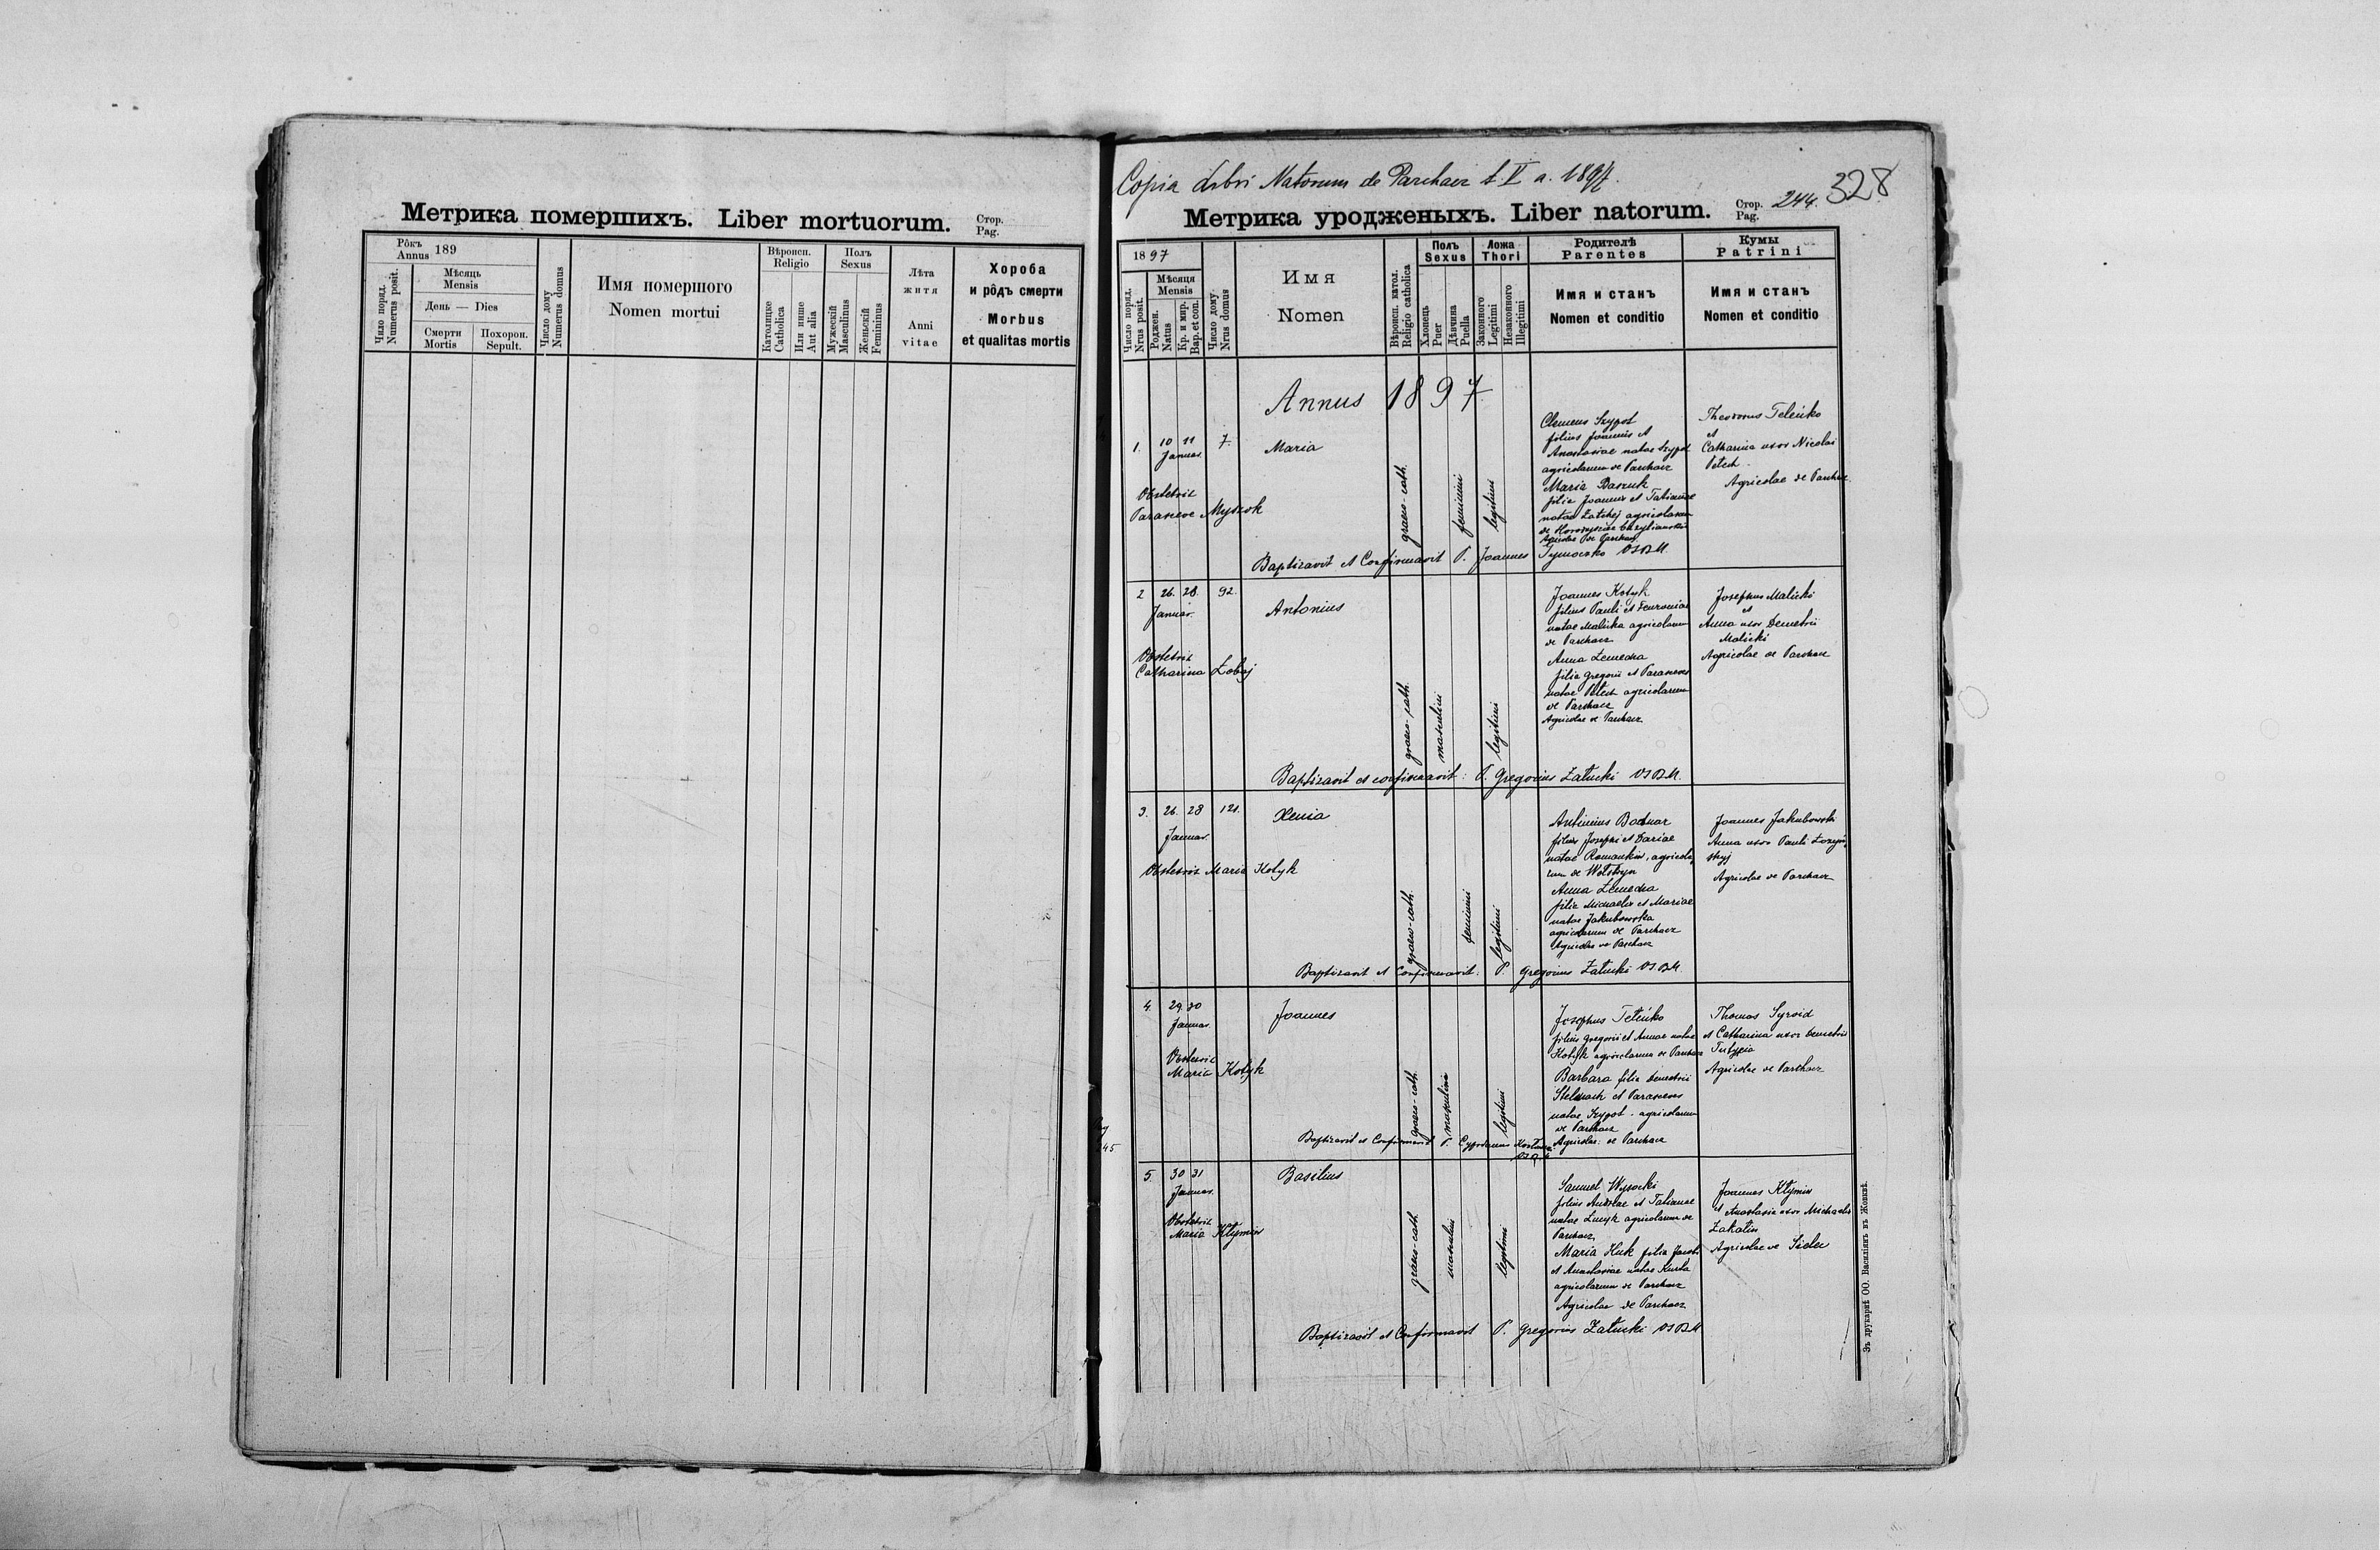 Метрика помершихъ. Liber mortuorum. Стор. Pag.
Рôкъ Annus 189
Число поряд. Numerus posit.
Мѣсяць Mensis
День — Dies
Смерти Mortis
Похорон. Sepult.
Число дому Numerus domus
Имя помершого
Nomen mortui
Вѣроисп. Religio
Католицке Catholica
Или инше Aut alia
Полъ Sexus
Мужескій Masculinus
Женьскій Femininus
Лѣта житя
Anni vitae
Хороба
и рôдъ смерти
Morbus
et qualitas mortis
Copia Libri Natorum de Parchacz t. V a. 1897.
Метрика уродженыхъ. Liber natorum. Стор. Pag. 244. 328
1897
Число поряд. Nrus posit.
Мѣсяця Mensis
Роджен. Natus
Кр. и мир. Bap. et con.
Число дому Nrus domus
Имя
Nomen
Вѣроисп. катол. Religio catholica
Полъ Sexus
Хлопець Puer
Дѣвчина Puella
Ложа Thori
Законного Legitimi
Незаконного Illegitimi
Родителѣ
Parentes
Имя и станъ
Nomen et conditio
Кумы
Patrini
Имя и станъ
Nomen et conditio
Annus 1897
1. 10 11 Januar. 7. Maria
Obstetrix
Parasceve Myszok
graeco-cath.
feminini
legitimi
Clemens Szypot
filius Joannis et
Anastasiae natae Szypot
agricolarum de Parchacz
Maria Baszuk
filia Joannis et Tatianae
natae Zatchej agricolarum
de
Agricolae de Parchacz
Theodorus Teleńko
et
Catharina uxor Nicolai
Petech
Agricolae de Parchacz
Baptizavit et Confirmavit P. Joannes Tymoczko OSBM.
2 26. 28. Januar. 92. Antonius
Obstetrix
Catharina Łobaj
graeco-cath.
masculini
legitimi
Joannes Kotyk
filius Pauli et Feuroniae
natae Malicka agricolarum
de Parchacz
Anna
filia Gregorii et Parasceves
natae Petech agricolarum
de Parchacz
Agricolae de Parchacz
Josephus Malicki
et
Anna uxor Demetrii
Malicki
Agricolae de Parchacz
Baptizavit et confirmavit: P. Gregorius Załucki OSBM.
3. 26. 28 Januar. 121. Xenia
Obstetrix Maria Kotyk
graeco-cath.
feminini
legitimi
Antonius Bodnar
filius Josephi et Dariae
natae Romankiw, agricola-
rum de Wolswyn
Anna
filia Michaelis et Mariae
natae Jakubowska
agricolarum de Parchacz
Agricolae de Parchacz
Joannes Jakubowski
Anna uxor Pauli
skyj
Agricolae de Parchacz
Baptizavit et Confirmavit: P. Gregorius Załucki OSBM.
4. 29. 30 Januar. Joannes
Obstetrix
Maria Kotyk
graeco-cath.
masculini
legitimi
Josephus Teleńko
filius Gregorii et Annae natae
Kotyk agricolarum de Parchacz
Barbara filia Demetrii
Stelmach et Parasceves
natae Szypot agricolarum
de Parchacz
Agricolae de Parchacz
Thomas Syroid
et Catharina uxor Demetrii
Agricolae de Parchacz
Baptizavit et Confirmavit P. Cyprianus
5. 30 31 Januar. Basilius
Obstetrix
Maria Kłymiw
graeco-cath.
masculini
legitimi
Samuel Wysocki
filius Andreae et Tatianae
natae Lucyk agricolarum de
Parchacz
Maria Huk filia Jacobi
et Anastasiae natae
agricolarum de Parchacz
Agricolae de Parchacz
Joannes Kłymiw
et Anastasia uxor Michaelis
Zakalin
Agricolae de Sielec
Baptizavit et Confirmavit P. Gregorius Załucki OSBM
Зъ друкарнѣ ОО. Василіянъ въ Жовквѣ.